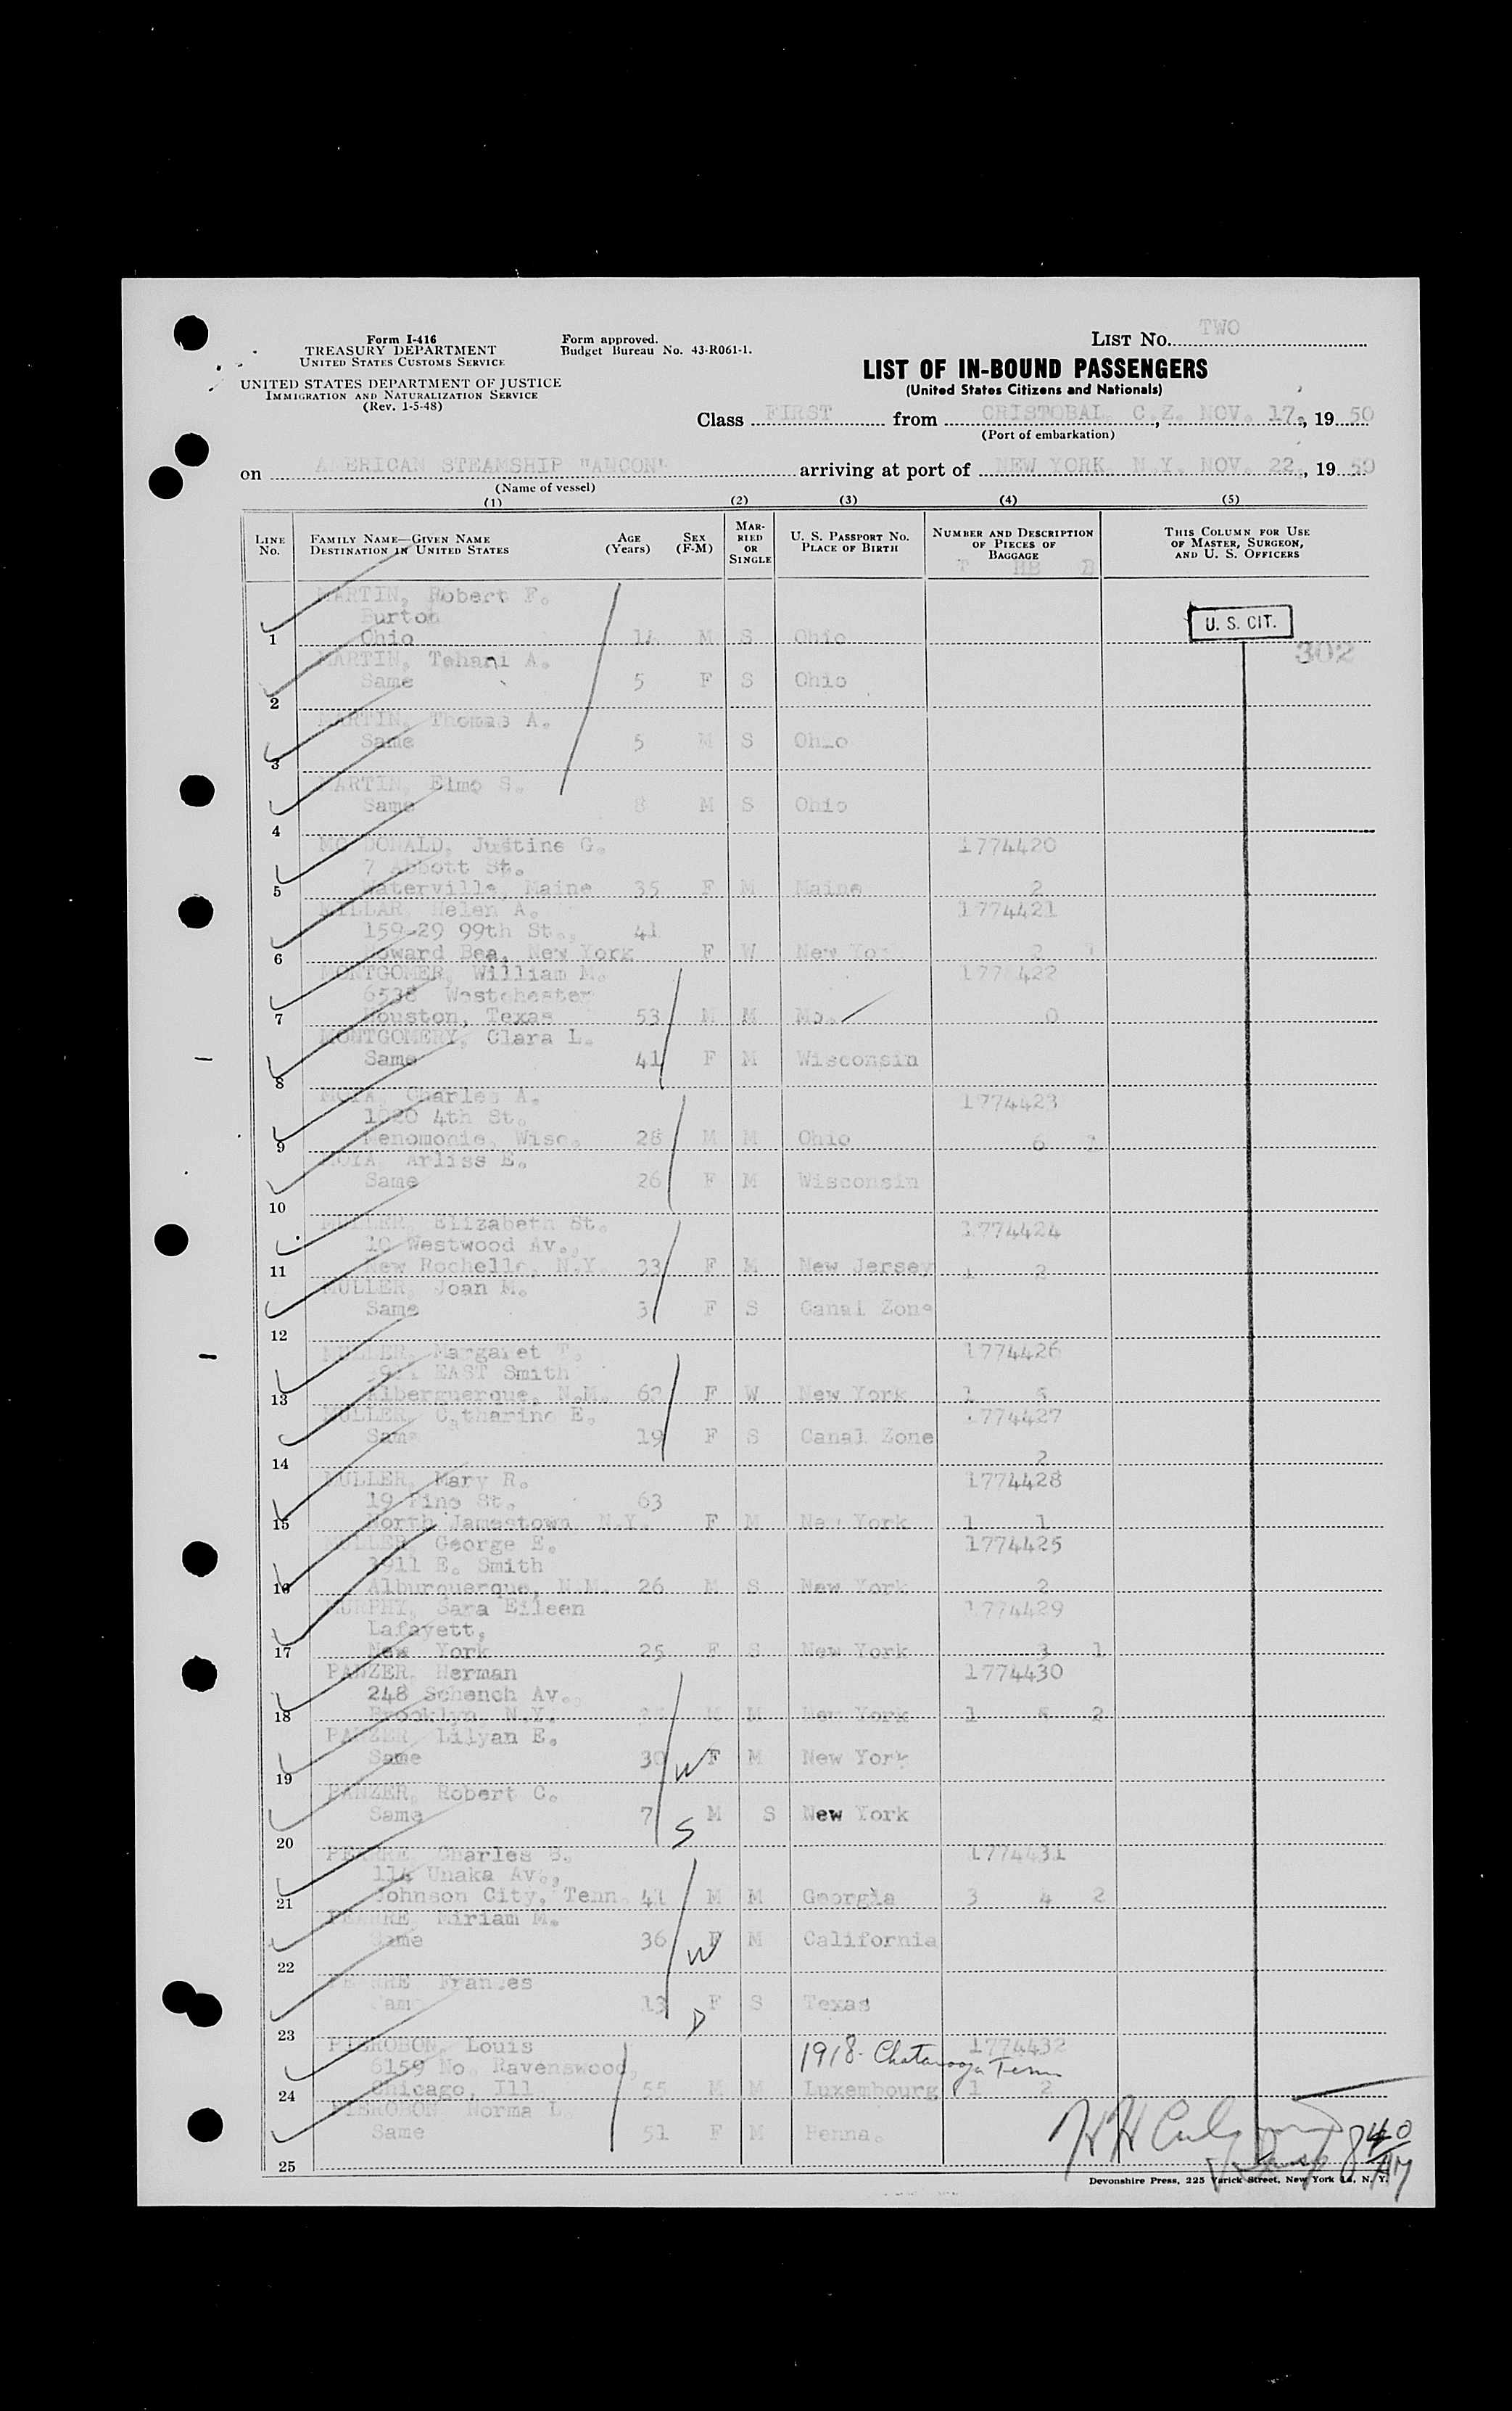 Form I-416
TREASURY DEPARTMENT
UNITED STATES CUSTOMS SERVICE
UNITED STATES DEPARTMENT OF JUSTICE
IMMIGRATION AND NATURALIZATION SERVICE
(Rev. 1-5-48)
Form approved.
Budget Bureau No. 43-R061-1.
LIST No. TWO
LIST OF IN-BOUND PASSENGERS
(United States Citizens and Nationals)
Class FIRST from CRISTOBAL, C.Z. NOV. 17, 19 50
(Port of embarkation)
on AMERICAN STEAMSHIP "ANCON" arriving at port of NEW YORK, N.Y. NOV. 22, 19 50
(Name of vessel)
(1) (2) (3) (4) (5)
LINE No. FAMILY NAME—GIVEN NAME DESTINATION IN UNITED STATES AGE (Years) SEX (F-M) MARRIED OR SINGLE U. S. PASSPORT No. PLACE OF BIRTH NUMBER AND DESCRIPTION OF PIECES OF BAGGAGE THIS COLUMN FOR USE OF MASTER, SURGEON, AND U. S. OFFICERS
T HB B
MARTIN, Robert F.
Burton
1 Ohio 14 M S Ohio
U. S. CIT.
302
MARTIN, Tehani A.
Same 5 F S Ohio
2
MARTIN, Thomas A.
Same 5 M S Ohio
3
MARTIN, Elmo S.
Same 8 M S Ohio
4
MC DONALD, Justine G. 1774420
7 Abbott St.
5 Waterville, Maine 35 F M Maine 2
MILLAR, Helen A. 1774421
159-29 99th St., 41
6 Howard Bea, New York F W New Yo 2 1
MONTGOMER, William M. 1774422
6538 Westchester
7 Houston, Texas 53 M M Mo. 0
MONTGOMERY, Clara L.
Same 41 F M Wisconsin
8
MOYA, Charles A. 1774423
1020 4th St.
9 Menomonie, Wisc. 28 M M Ohio 6
MOYA, Arliss E.
Same 26 F M Wisconsin
10
MULLER, Elizabeth St. 1774424
10 Westwood Av.,
11 New Rochelle, N.Y. 33 F M New Jersey 1 2
MULLER, Joan M.
Same 3 F S Canal Zone
12
MULLER, Margaret T. 1774426
EAST Smith
13 Alberquerque, N.M. 62 F W New York 1 5
MULLER, Catharine E. 1774427
Same 19 F S Canal Zone
14 2
MULLER, Mary R. 1774428
19 Pine St. 63
15 North Jamestown N.Y. F M New York 1 1
MULLER, George E. 1774425
3911 E. Smith
16 Alburquerque, N.M. 26 M S New York 2
MURPHY, Sara Eileen 1774429
Lafayett,
17 New York 25 F S New York 3 1
PANZER, Herman 1774430
248 Schench Av.,
18 Brooklyn, N.Y. M M New York 1 5 2
PANZER, Lilyan E.
Same 30 W F M New York
19
PANZER, Robert C.
Same 7 S M S New York
20
Charles B. 1774431
114 Unaka Av.,
21 Johnson City, Tenn 41 M M Georgia 3 4 2
Miriam M.
Same 36 W F M California
22
Frances
Same 13 D F S Texas
23
PIEROBON, Louis 1918- Chatanooga Tenn 1774432
6159 No. Ravenswood,
24 Chicago, Ill 55 M M Luxembourg 1 2
PIEROBON Norma L
Same 51 F M Penna.
25
840 AM
Devonshire Press, 225 Varick Street, New York 14, N. Y.